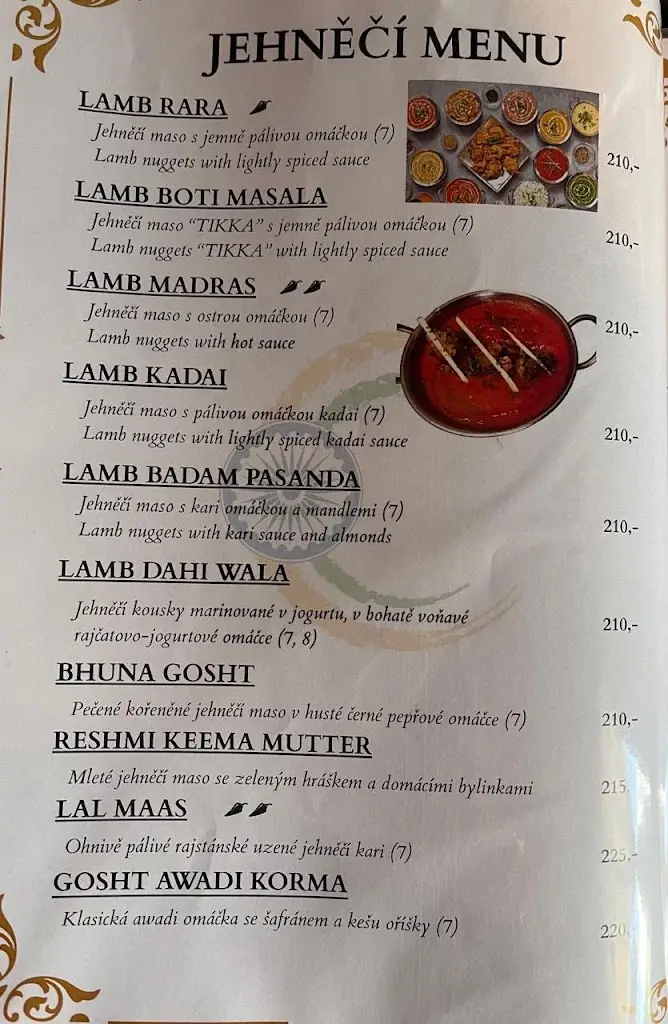 JEHNĚČÍ MENU
LAMB RARA
Jehněčí maso s jemně pálivou omáčkou (7)
Lamb nuggets with lightly spiced sauce
210,-
LAMB BOTI MASALA
Jehněčí maso "TIKKA" s jemně pálivou omáčkou (7)
Lamb nuggets "TIKKA" with lightly spiced sauce
210,-
LAMB MADRAS
Jehněčí maso s ostrou omáčkou (7)
Lamb nuggets with hot sauce
210,-
LAMB KADAI
Jehněčí maso s pálivou omáčkou kadai (7)
Lamb nuggets with lightly spiced kadai sauce
210,-
LAMB BADAM PASANDA
Jehněčí maso s kari omáčkou a mandlemi (7)
Lamb nuggets with kari sauce and almonds
210,-
LAMB DAHI WALA
Jehněčí kousky marinované v jogurtu, v bohatě voňavé
rajčatovo-jogurtové omáčce (7, 8)
210,-
BHUNA GOSHT
Pečené kořeněné jehněčí maso v husté černé pepřové omáčce (7)
210,-
RESHMI KEEMA MUTTER
Mleté jehněčí maso se zeleným hráškem a domácími bylinkami
215,
LAL MAAS
Ohnivě pálivé rajstánské uzené jehněčí kari (7)
225,-
GOSHT AWADI KORMA
Klasická awadi omáčka se šafránem a kešu oříšky (7)
220,